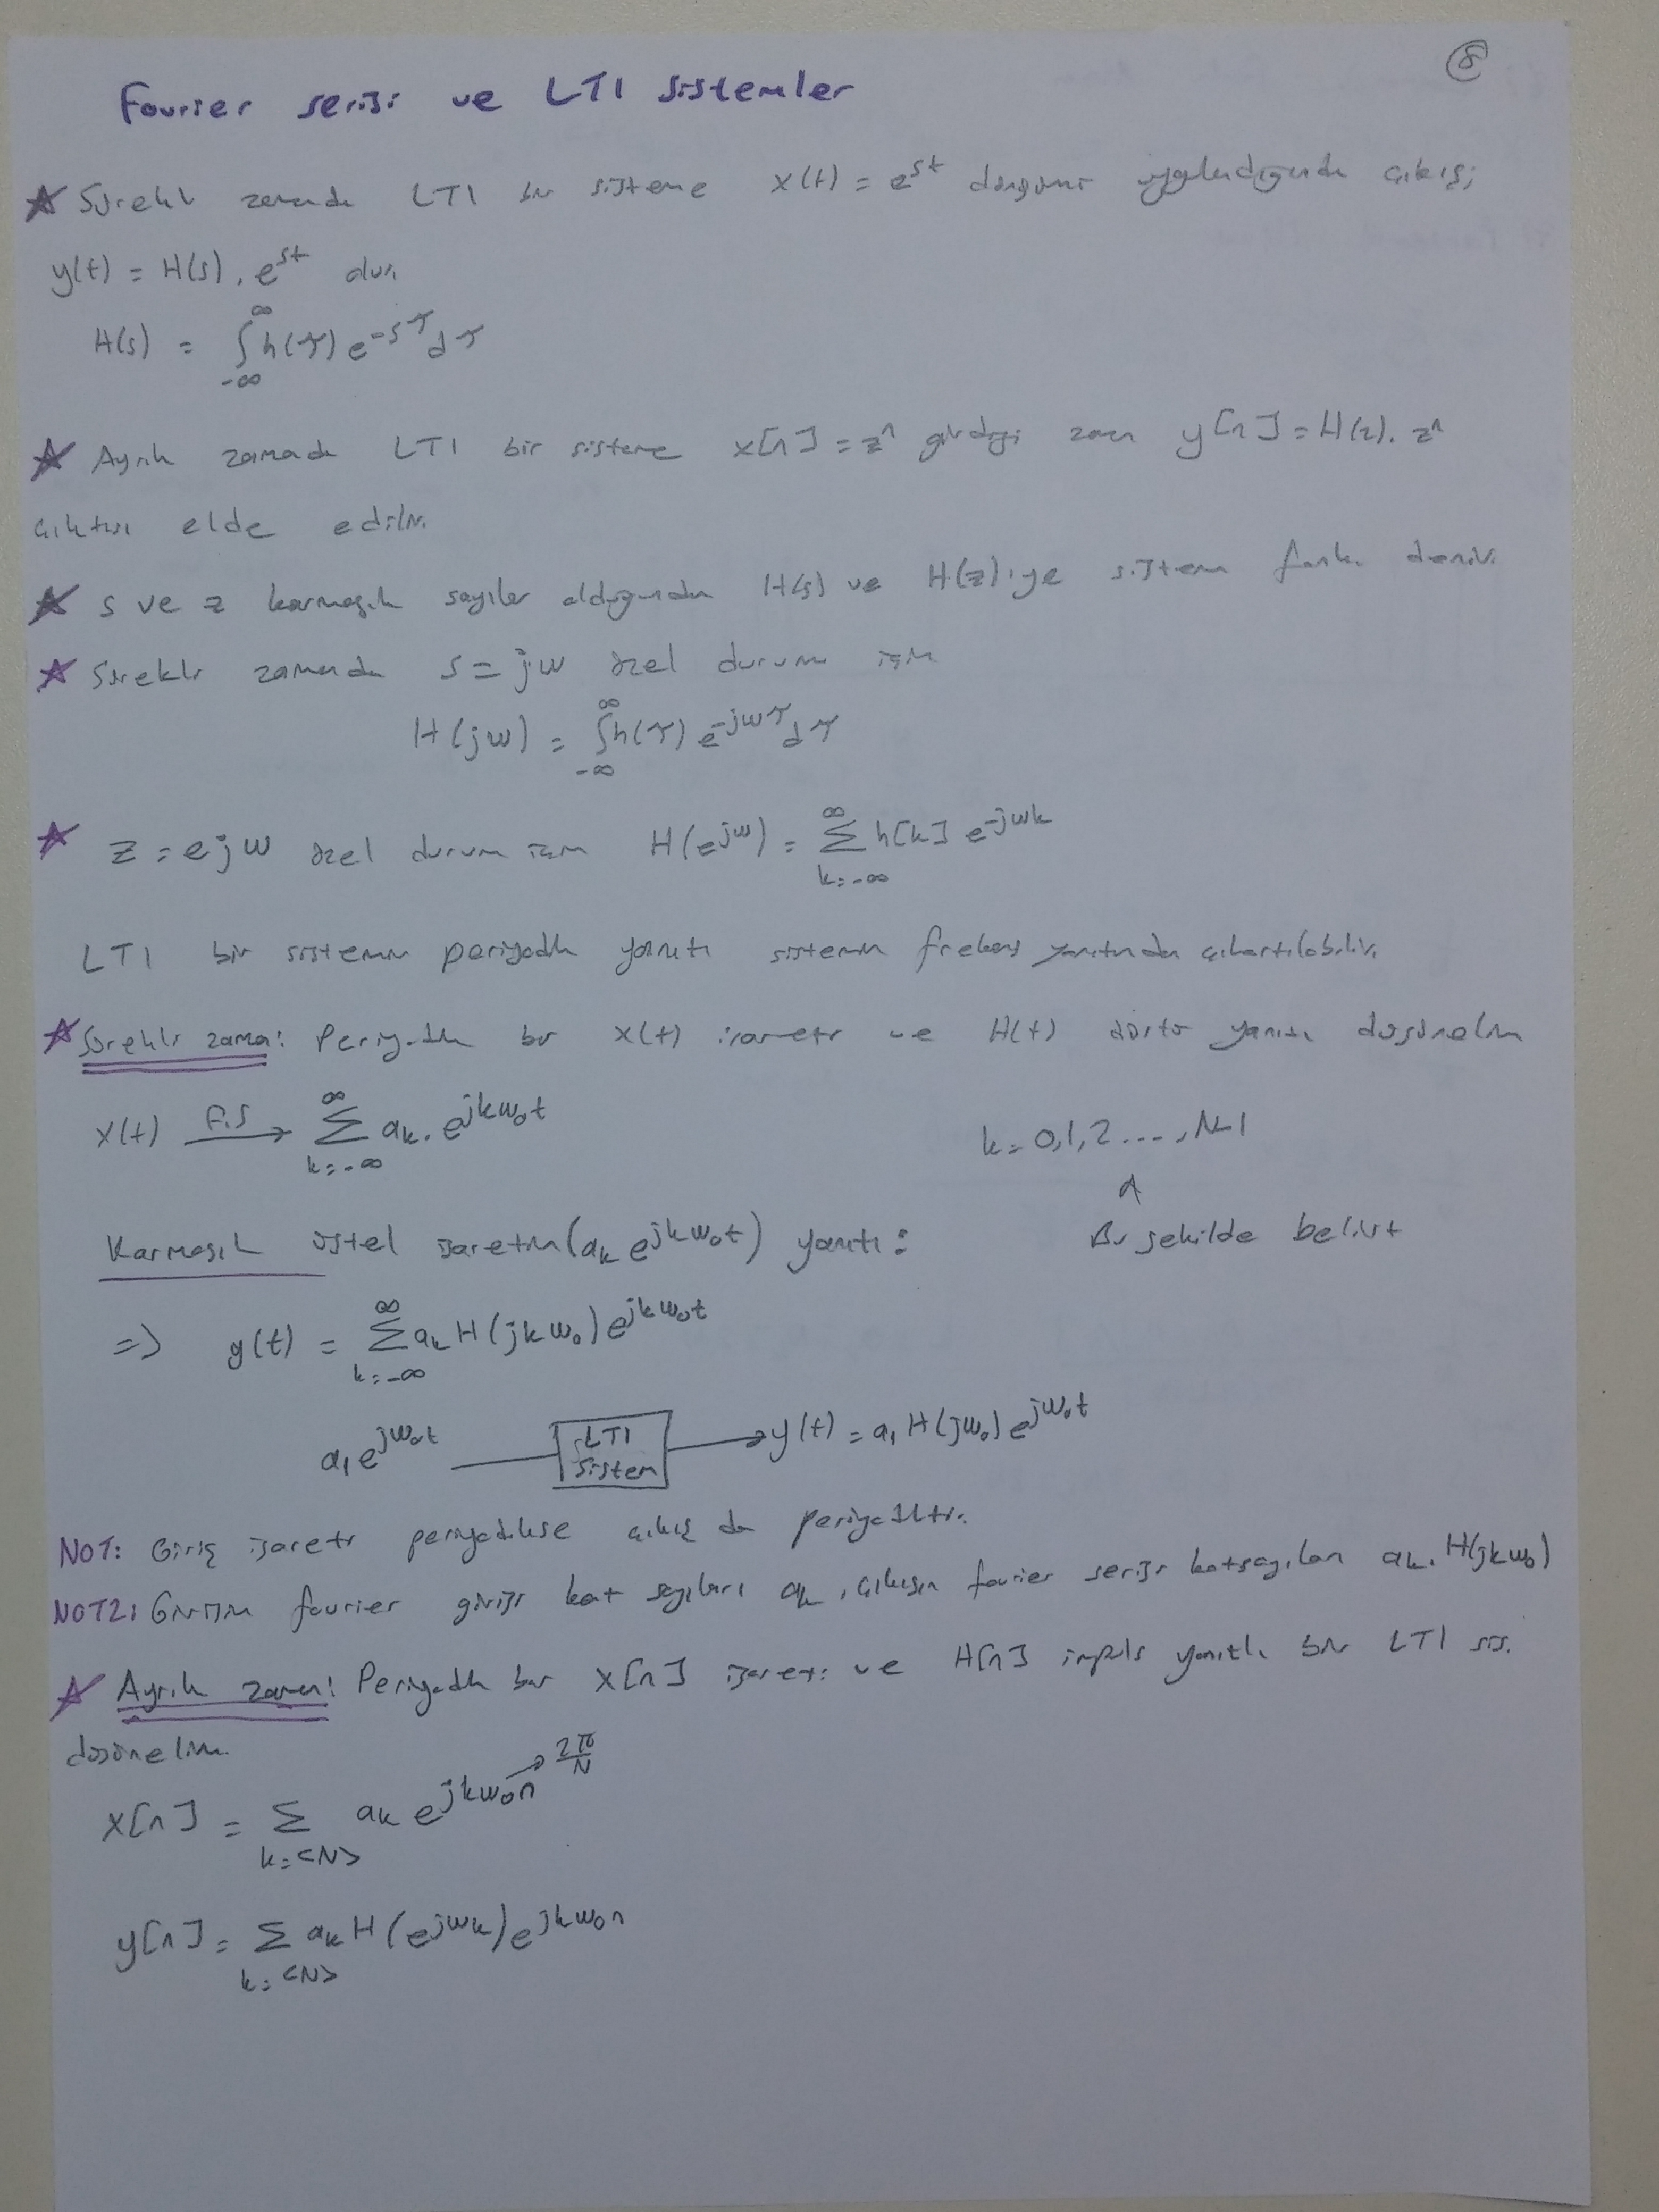 8
Fourier serisi ve LTI sistemler
★ Sürekli zamanda LTI bir sisteme x(t) = e^{st} dönüşümü uygulandığında çıkış;
y(t) = H(s) . e^{st} olur.
H(s) = ∫_{-∞}^{∞} h(τ) e^{-sτ} dτ
★ Ayrık zamanda LTI bir sisteme x[n] = z^n girdiği zaman y[n] = H(z). z^n
çıktısı elde edilir.
★ s ve z karmaşık sayılar olduğundan H(s) ve H(z)'ye sistem fonk. denir.
★ Sürekli zamanda s = jw özel durum için
H(jw) = ∫_{-∞}^{∞} h(τ) e^{-jwτ} dτ
★ z = ejw özel durum için H(e^{jw}) = ∑_{k=-∞}^{∞} h[k] e^{-jwk}
LTI bir sistemin periyodik yanıtı sistemin frekans yanıtından çıkartılabilir.
★ Sürekli zaman: Periyodik bir x(t) işareti ve H(t) dürtü yanıtı düşünelim
x(t) —F.S→ ∑_{k=-∞}^{∞} a_k . e^{jkw_0t}
k = 0,1,2...., N-1
Bu şekilde belirt
Karmaşık üstel işaretin (a_k e^{jkw_0t}) yanıtı:
=> y(t) = ∑_{k=-∞}^{∞} a_k H(jkw_0) e^{jkw_0t}
a_1 e^{jw_0t} — LTI Sistem → y(t) = a_1 H(jw_0) e^{jw_0t}
NOT: Giriş işareti periyodikse çıkış da periyodiktir.
NOT2: Girişin fourier girişi kat sayıları a_k, çıkışın fourier serisi katsayıları a_k. H(jkw_0)
★ Ayrık zaman: Periyodik bir x[n] işareti ve H[n] impuls yanıtlı bir LTI sis.
düşünelim.
x[n] = ∑_{k=<N>} a_k e^{jkw_0n} → 2π/N
y[n] = ∑_{k=<N>} a_k H(e^{jwk}) e^{jkw_0n}